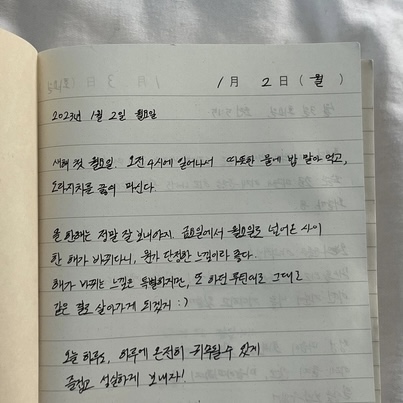 1月 2日 (월)
2023년 1월 2일 월요일
새해 첫 월요일. 오전 4시에 일어나서 따뜻한 물에 밥 말아 먹고,
도라지차를 끓여 마신다.
올 한해는 정말 잘 보내야지. 일요일에서 월요일로 넘어온 사이
한 해가 바뀌다니, 뭔가 단정한 느낌이라 좋다.
해가 바뀌는 느낌은 특별하지만, 또 하던 루틴대로 그대로
같은 결로 살아가게 되겠지 :)
오늘 하루도, 하루에 온전히 귀속될 수 있게
즐겁고 성실하게 보내자!